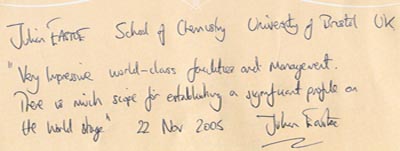 Julian EASTOE School of Chemistry University of Bristol UK
"Very Impressive world-class facilities and management.
There is much scope for establishing a significant profile on
the world stage" 22 Nov 2005 Julian Eastoe